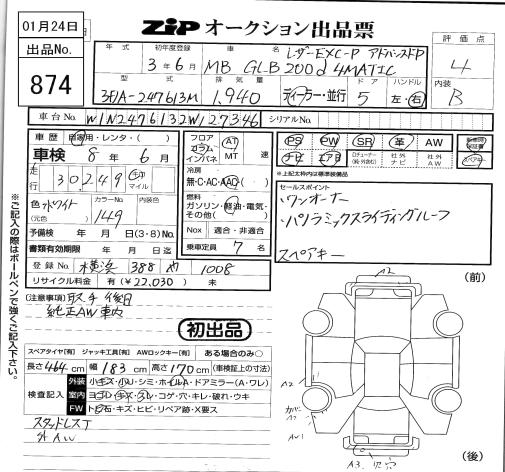 01月24日
ZiP オークション出品票
出品No.
874
年式
初年度登録
3年6月
車名
レザーEXC-P アドバンスドP
MB GLB200d 4MATIC
評価点
4
型式
3DA-247613M
排気量
1,940
ディーラー・並行
ドア
5
ハンドル
左・右
内装
B
車台No.
W1N2476132W127346
シリアルNo.
車歴 自家用・レンタ・( )
車検 8年6月
走行 30,249 キロ マイル
色 ホワイト
(元色)
カラーNo.
149
予備検 年 月 日(3・8)No.
書類有効期限 年 月 日迄
登録No. 横浜 388 や 1008
リサイクル料金 有(¥22,030) 未
フロア コラム インパネ
AT
MT 速
冷房
無・C・AC・AAC
燃料
ガソリン・軽油・電気・その他( )
Nox 適合・非適合
乗車定員 7名
PS PW SR 革 AW
ナビ エアB
社外ナビ
社外AW
スペアキー
※上記太枠内は標準装備品
セールスポイント
・ワンオーナー
・パノラミックスライディングルーフ
スペアキー
(注意事項) 取手後日
純正AW車内
初出品
スペアタイヤ[有] ジャッキ工具[有] AWロックキー[有] ある場合のみ○
長さ 464cm 幅 183cm 高さ 170cm (車検証上の寸法)
検査記入
外装 小キズ・小U・シミ・ホイルA・ドアミラー(A・ワレ)
室内 ヨゴレ・キズ・スレ・コゲ・穴・キレ・破れ・ウキ
FW トビ石・キズ・ヒビ・リペア跡・X要ス
スタッドレスT
外AW
※ご記入の際はボールペンで強くご記入下さい。
A2
(前)
A2
カバー
A2
AW1
A3
(後)